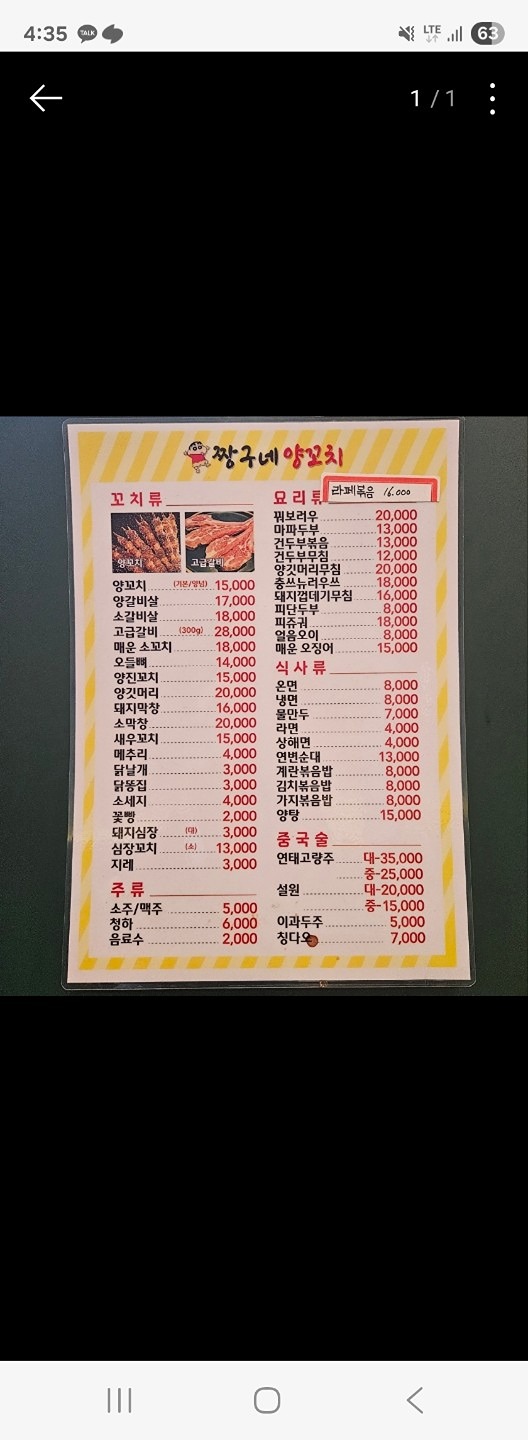 4:35 TALK LTE 63
1 / 1
짱구네 양꼬치
꼬치류
양꼬치 고급갈비
양꼬치 (기본/양념) 15,000
양갈비살 17,000
소갈비살 18,000
고급갈비 (300g) 28,000
매운 소꼬치 18,000
오돌뼈 14,000
양진꼬치 15,000
양깃머리 20,000
돼지막창 16,000
소막창 20,000
새우꼬치 15,000
메추리 4,000
닭날개 3,000
닭똥집 3,000
소세지 4,000
꽃빵 2,000
돼지심장 (대) 3,000
심장꼬치 (소) 13,000
지레 3,000
주류
소주/맥주 5,000
청하 6,000
음료수 2,000
묘리류
라페볶음 16.000
꿔보러우 20,000
마파두부 13,000
건두부볶음 13,000
건두부무침 12,000
양깃머리무침 20,000
충쓰뉴러우쓰 18,000
돼지껍데기무침 16,000
피단두부 8,000
피쥬궈 18,000
얼음오이 8,000
매운 오징어 15,000
식사류
온면 8,000
냉면 8,000
물만두 7,000
라면 4,000
상해면 4,000
연변순대 13,000
계란볶음밥 8,000
김치볶음밥 8,000
가지볶음밥 8,000
양탕 15,000
중국술
연태고량주 대-35,000
중-25,000
설원 대-20,000
중-15,000
이과두주 5,000
칭다오 7,000